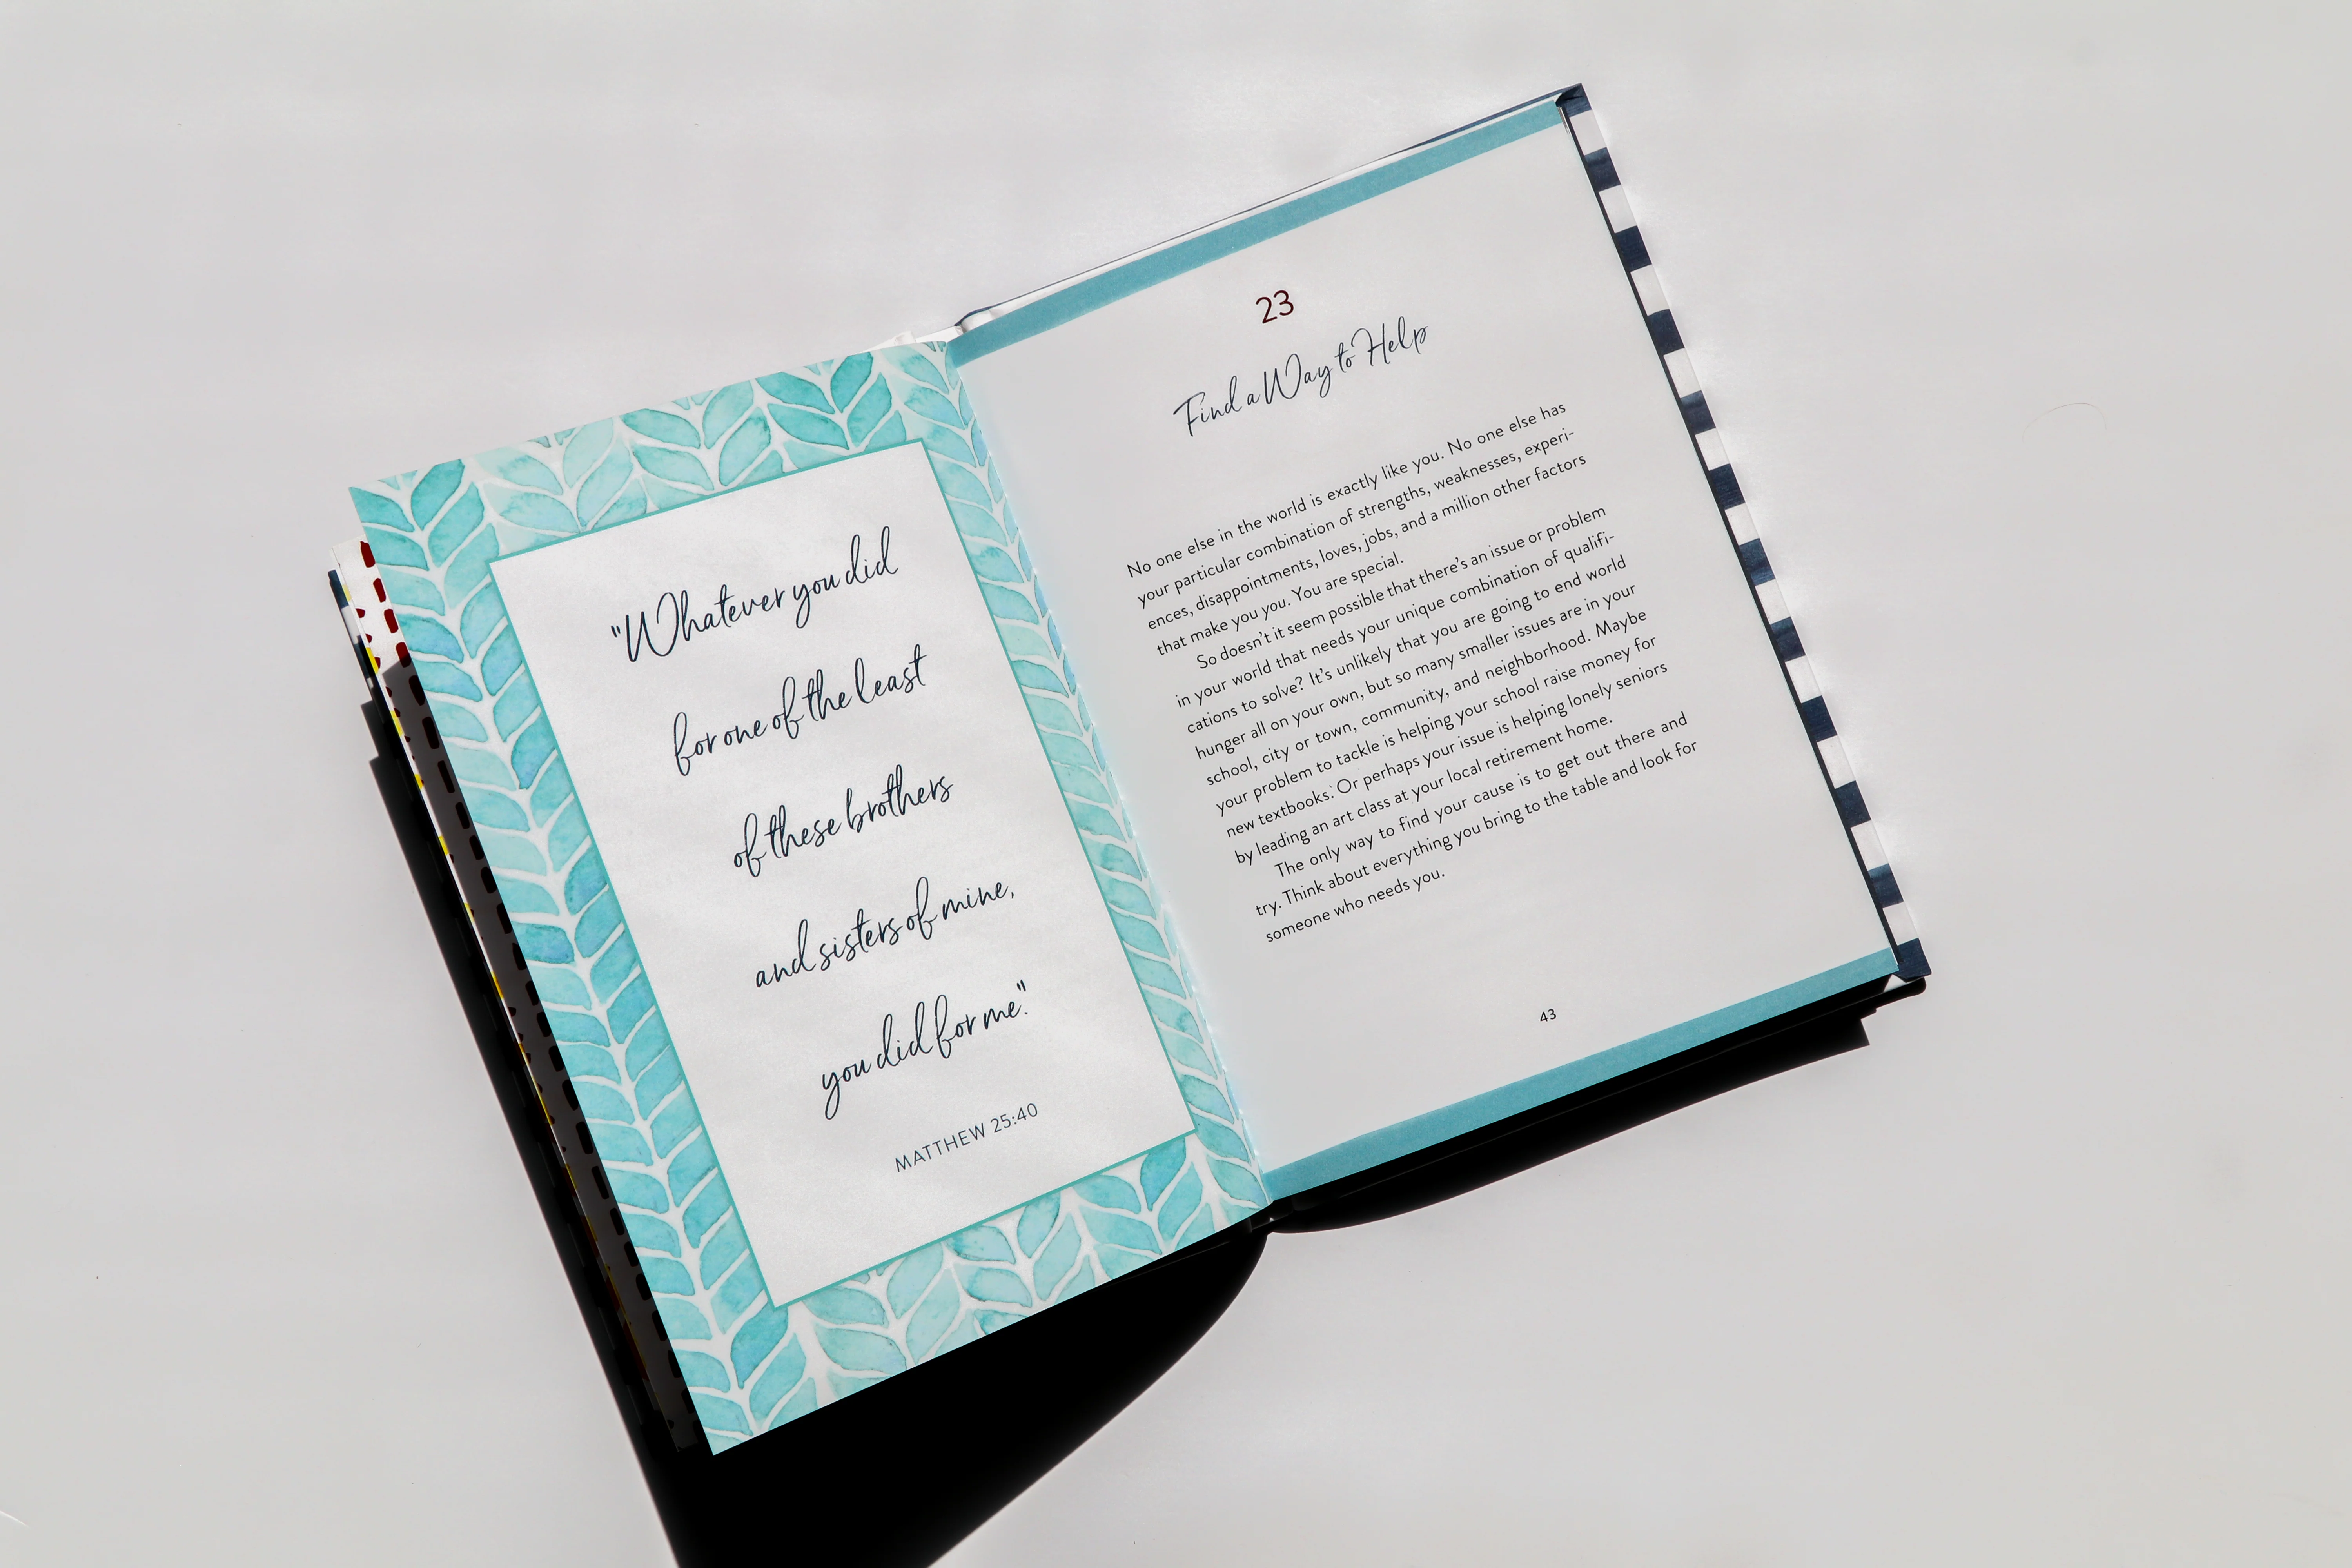 "Whatever you did
for one of the least
of these brothers
and sisters of mine,
you did for me."
MATTHEW 25:40
23
Find a Way to Help
No one else in the world is exactly like you. No one else has
your particular combination of strengths, weaknesses, experi-
ences, disappointments, loves, jobs, and a million other factors
that make you you. You are special.
So doesn't it seem possible that there's an issue or problem
in your world that needs your unique combination of qualifi-
cations to solve? It's unlikely that you are going to end world
hunger all on your own, but so many smaller issues are in your
school, city or town, community, and neighborhood. Maybe
your problem to tackle is helping your school raise money for
new textbooks. Or perhaps your issue is helping lonely seniors
by leading an art class at your local retirement home.
The only way to find your cause is to get out there and
try. Think about everything you bring to the table and look for
someone who needs you.
43